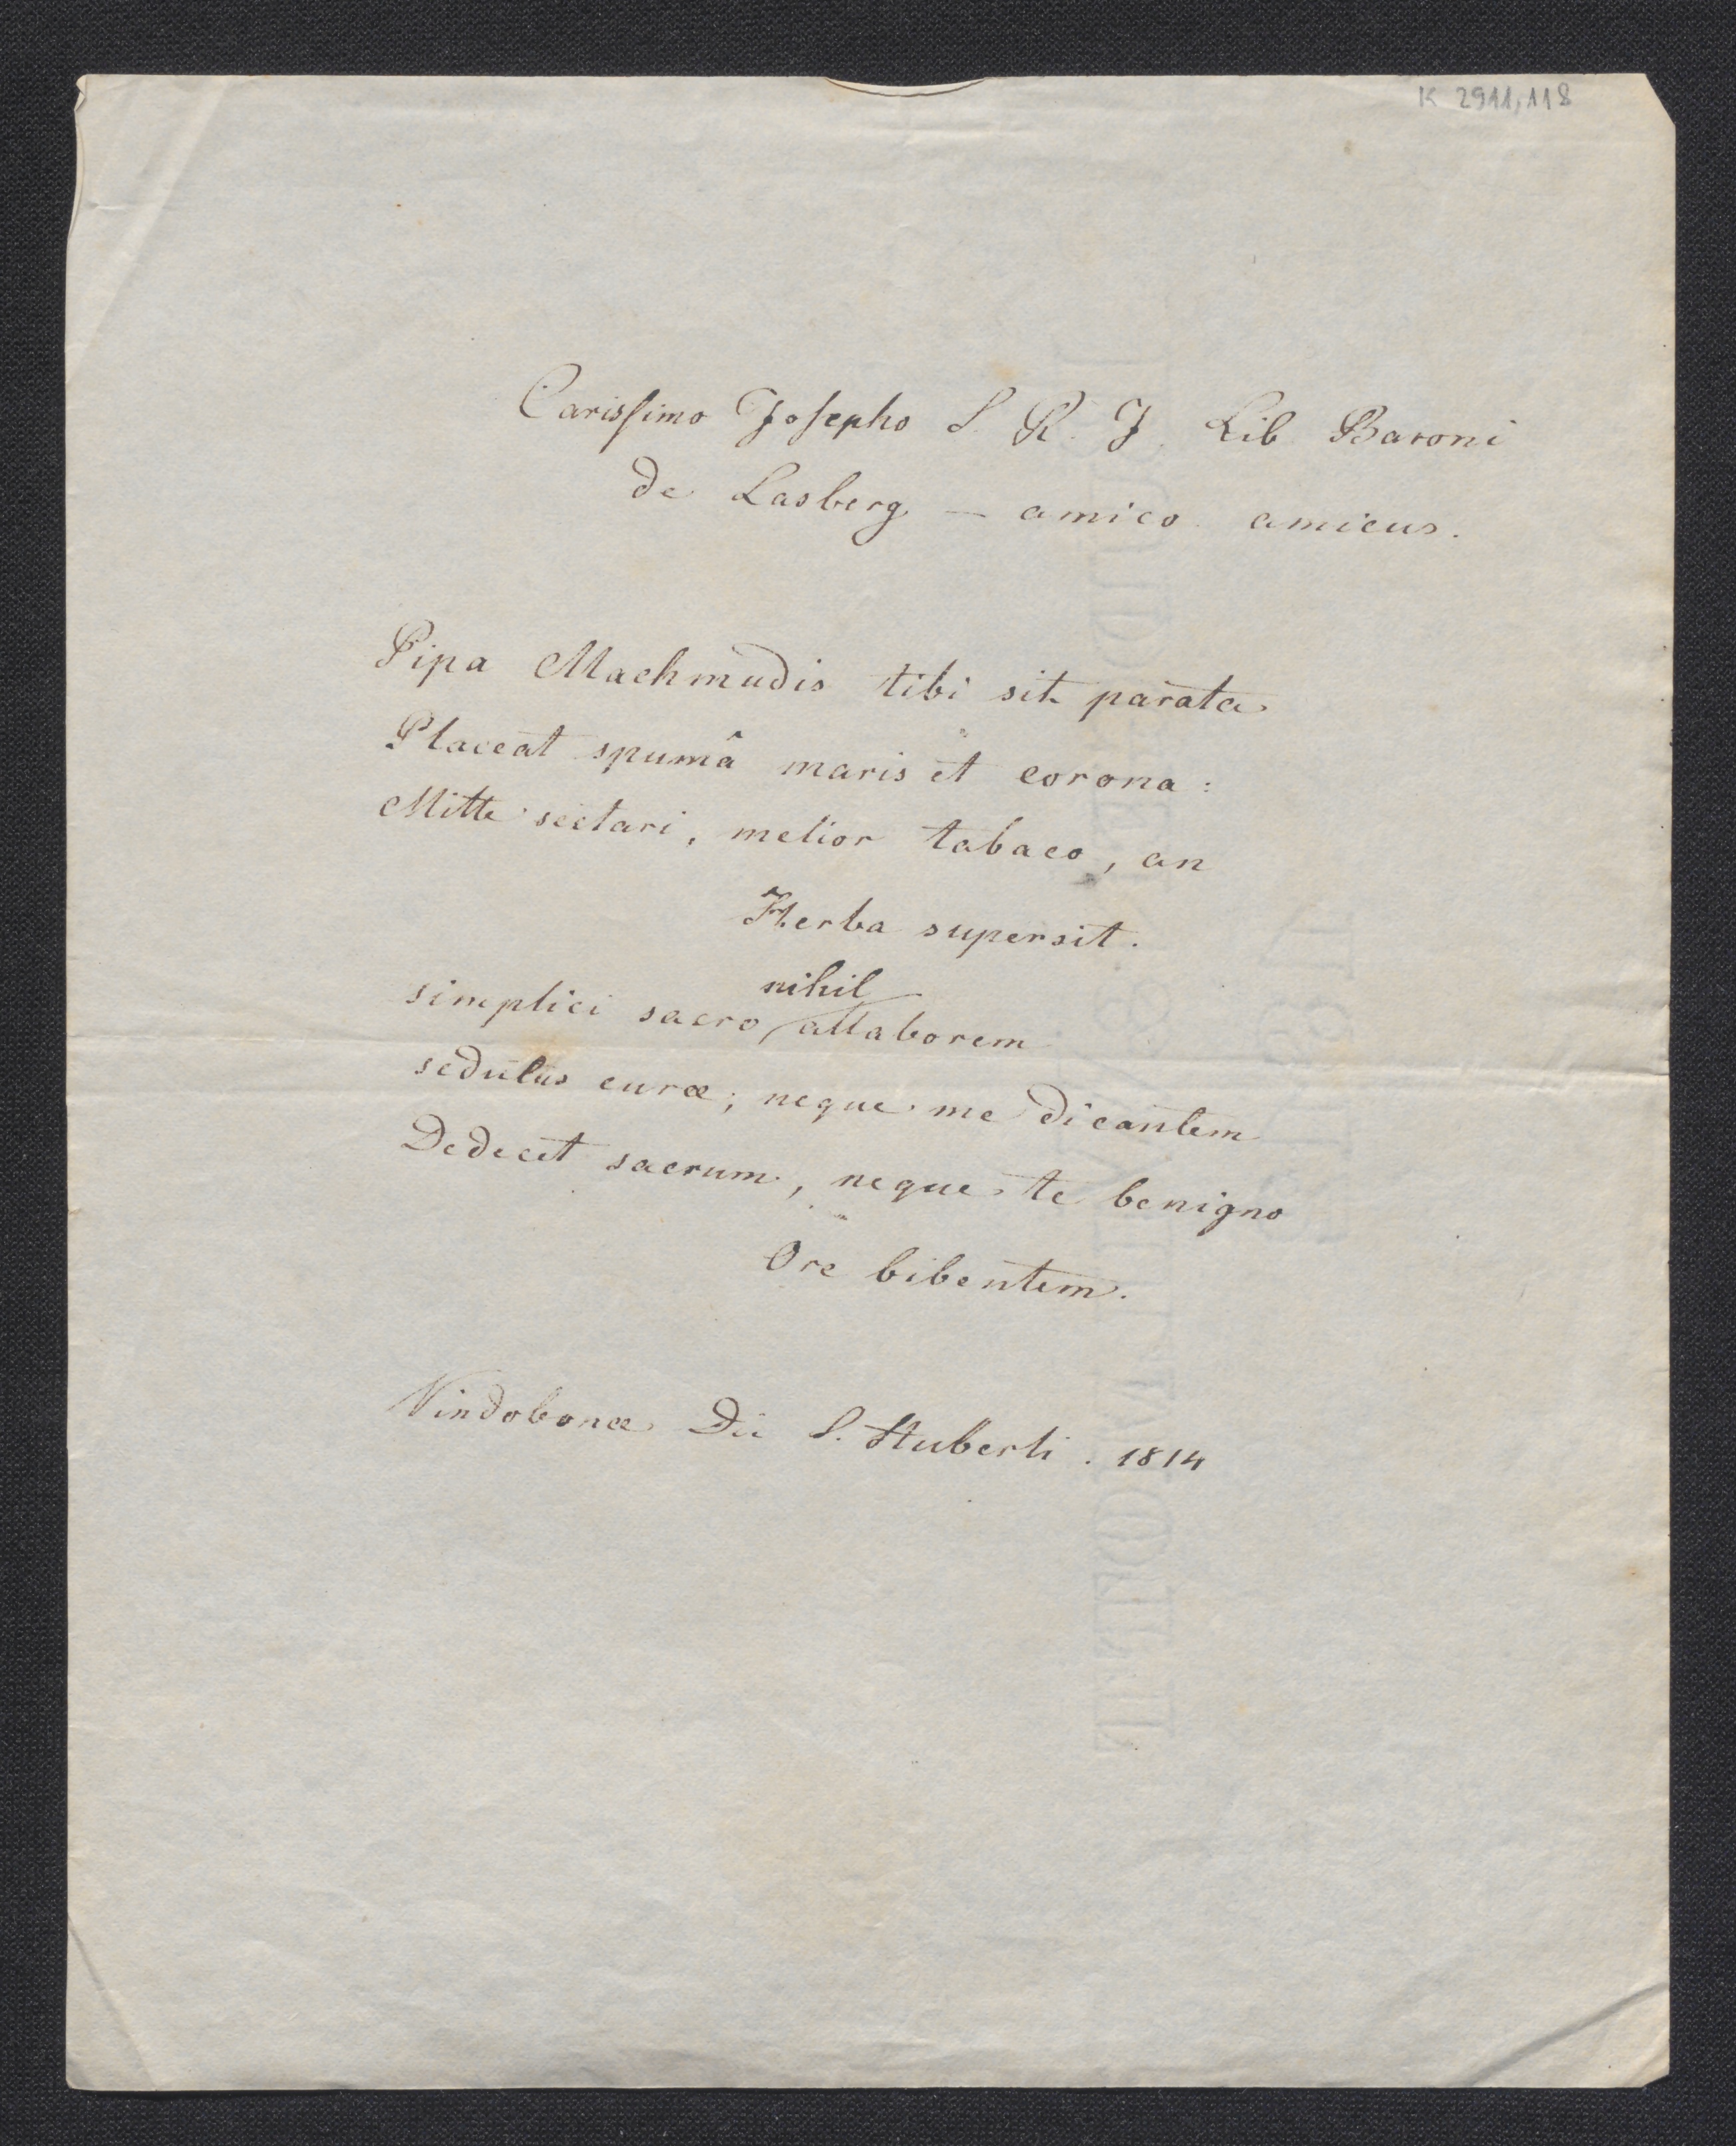 K 2911,118
Carissimo Josepho S. R. J. Lib Baroni
de Lasberg — amico amicus.
Pipa Machmudis tibi sit parata
Placeat spumâ maris et corona:
Mitte sectari, melior tabaco, an
Herba supersit.
nihil
simplici sacro allaborem
sedulus curæ; neque me dicantem
Dedecet sacrum, neque te benigno
Ore bibentem.
Vindobonæ Die S. Huberti. 1814